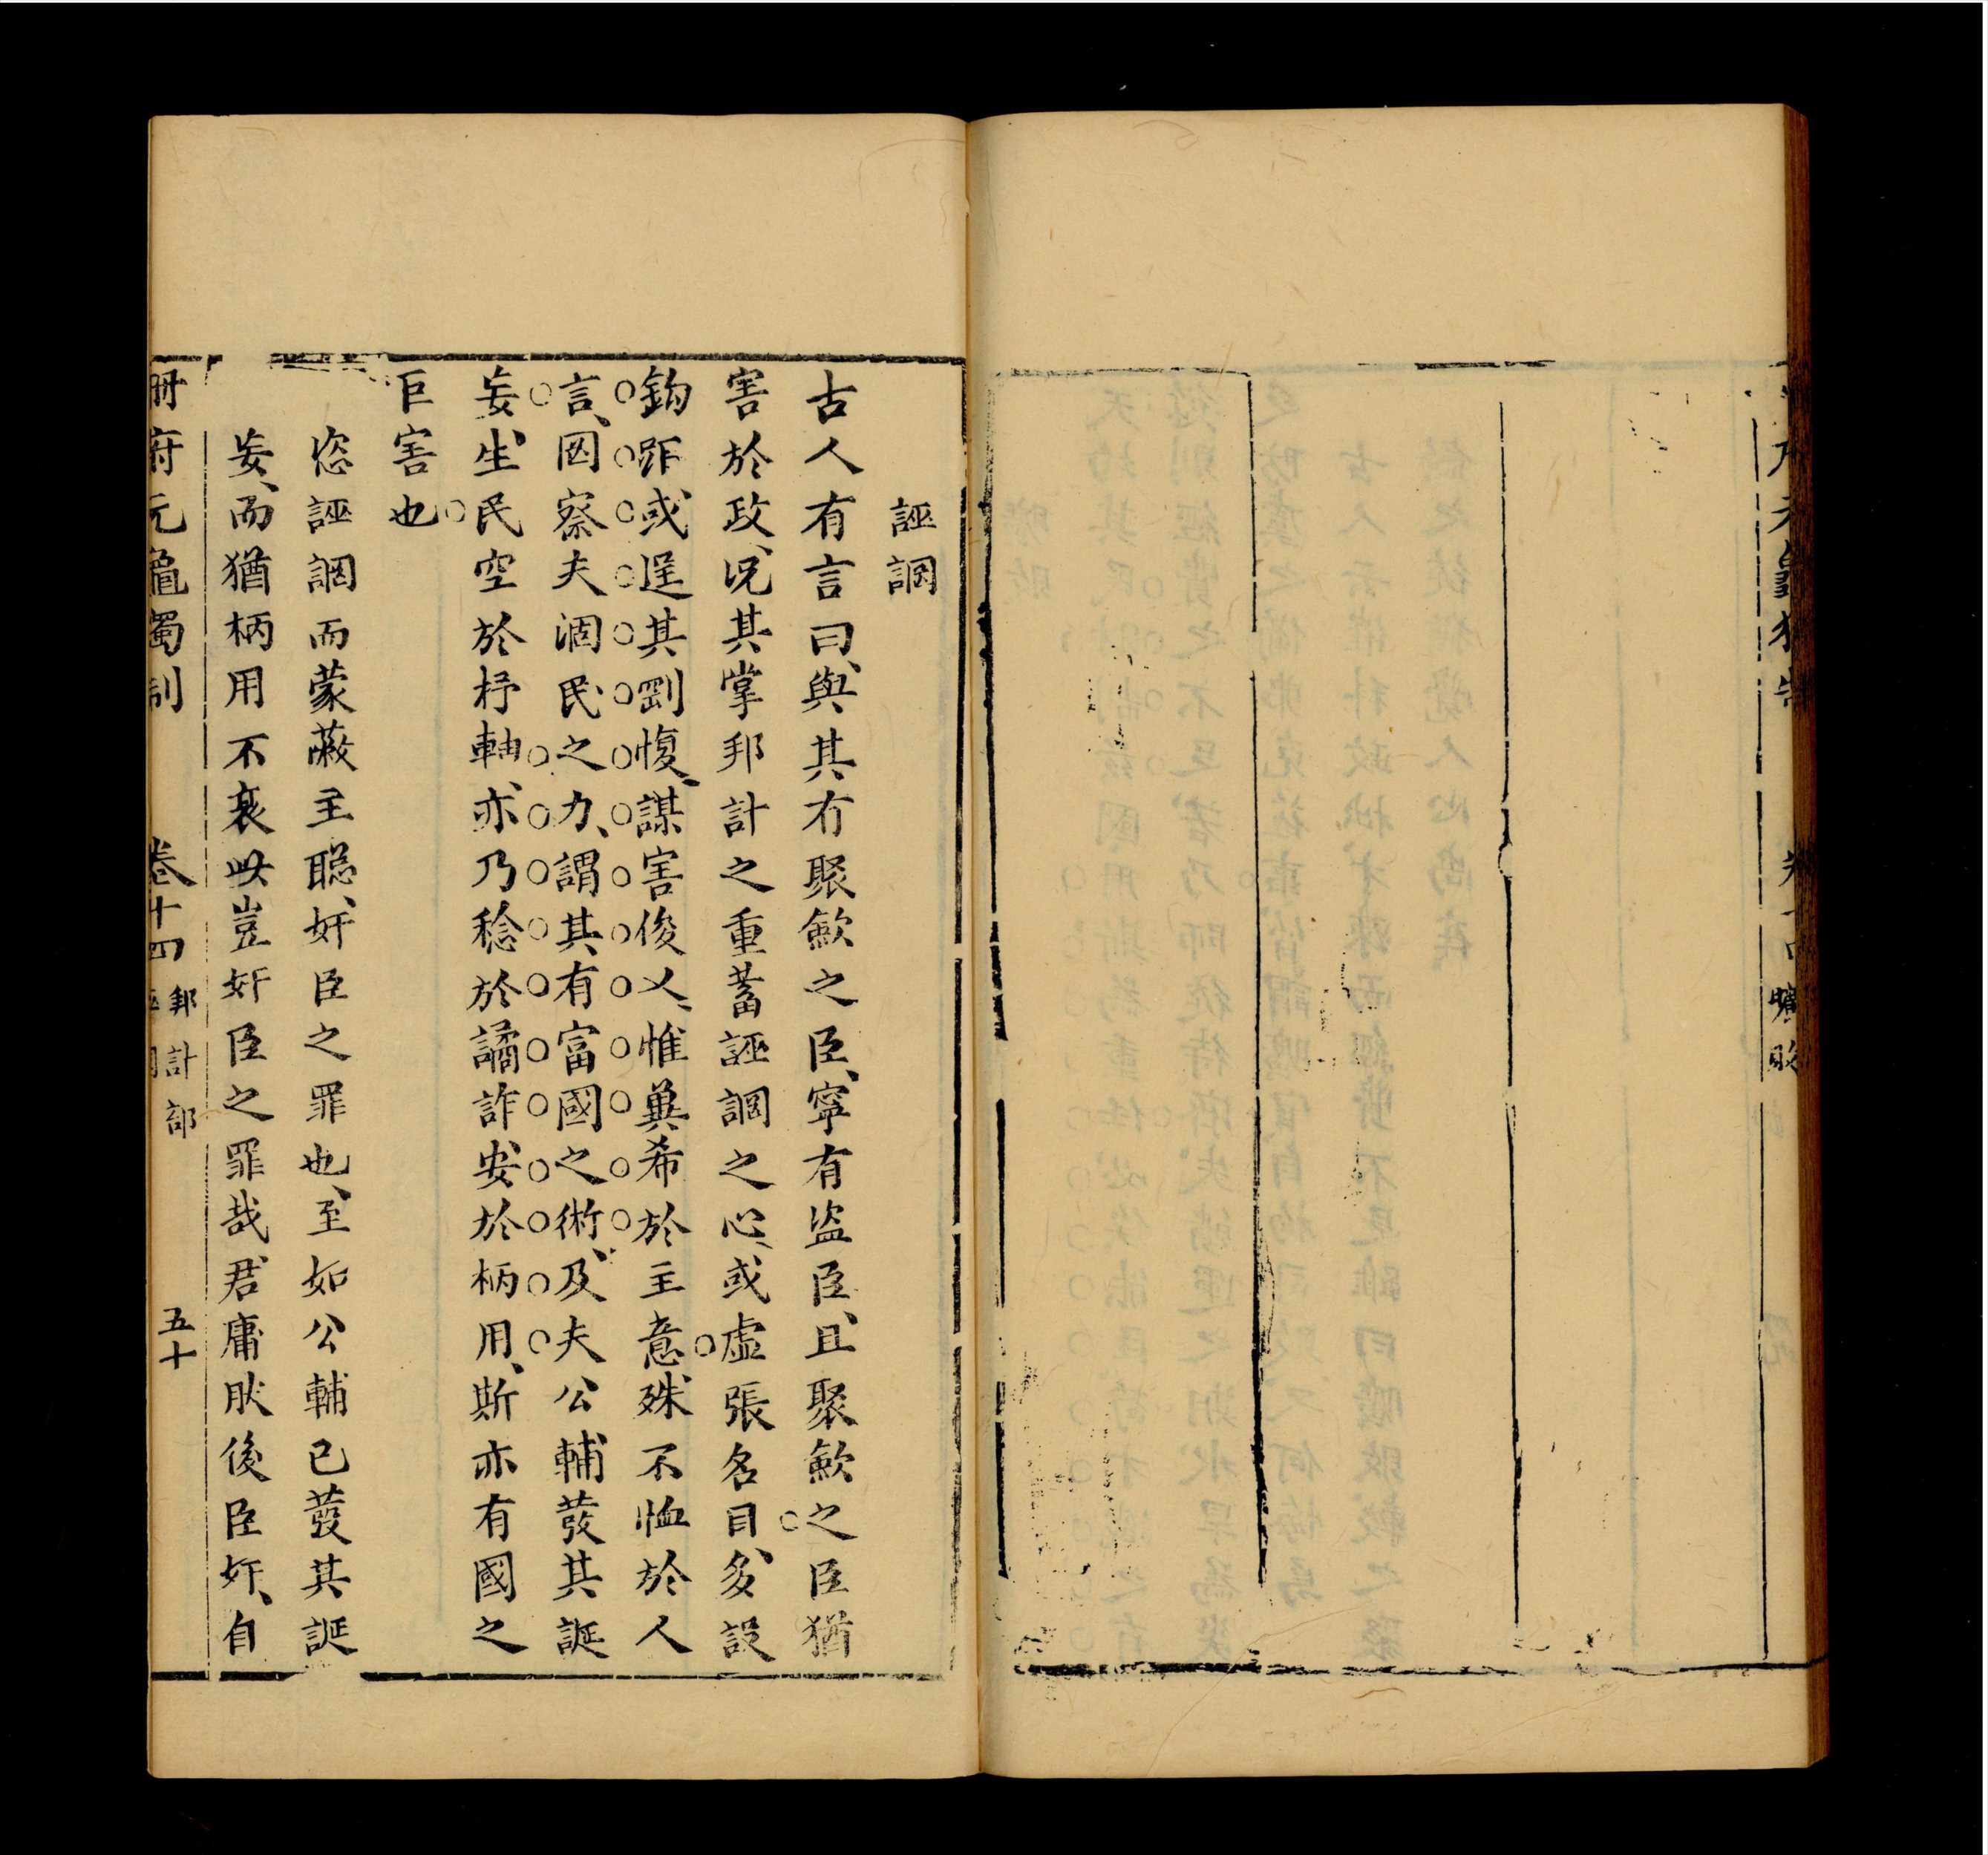 誣調
古人有言曰、與其冇聚歛之臣、寧有盗臣、且聚歛之臣猶
害於政、况其掌邦計之重蓄誣調之心、或虛張名目、多設
鈎距、或逞其剛愎、謀害俊乂、惟兾希於主意、殊不恤於人
言、罔察夫涸民之力、謂其有富國之術、及夫公輔發其誕
妄、生民空於杼軸、亦乃稔於譎詐、安於柄用、斯亦有國之
巨害也
恣誣調而蒙蔽主聪、奸臣之罪也、至如公輔已發其誕
妄、而猶柄用不衰此豈奸臣之罪哉君庸肰後臣奸、自
冊府元龜獨制
卷十四
邦計部
五十